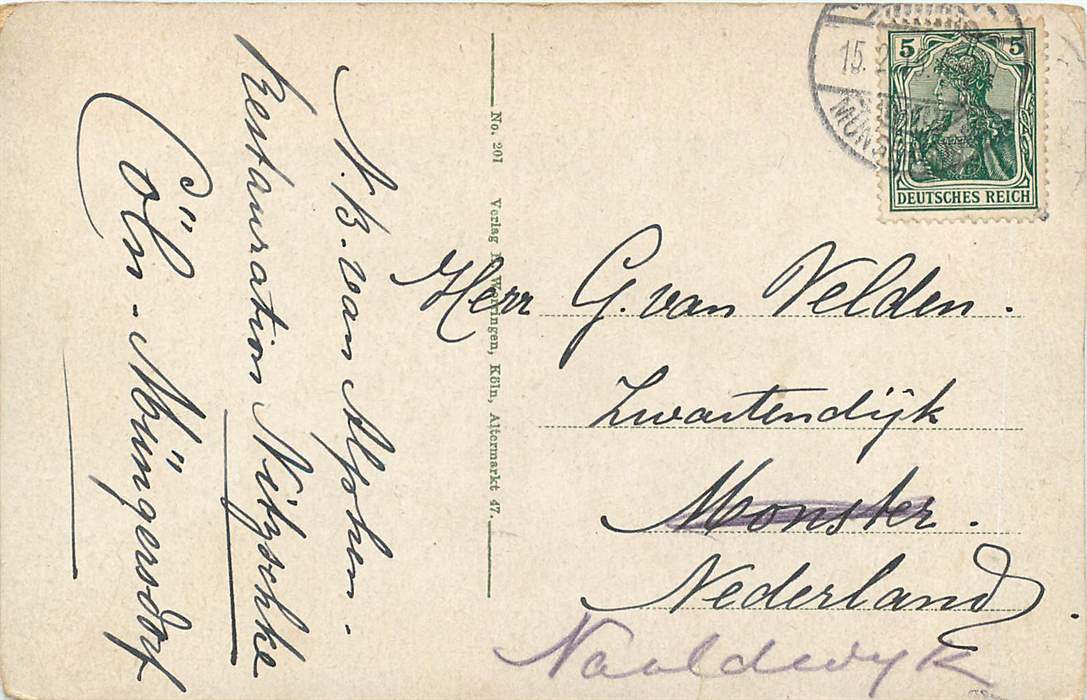 N.B. van Alphen.
Restauration Nitzschke
Cöln-Müngersdorf
No. 201 Verlag Worringen, Köln, Altermarkt 47.
15.
MÜNG
5 5
DEUTSCHES REICH
Herr G. van Velden.
Zwartendijk
Monster.
Nederland.
Naaldwyk